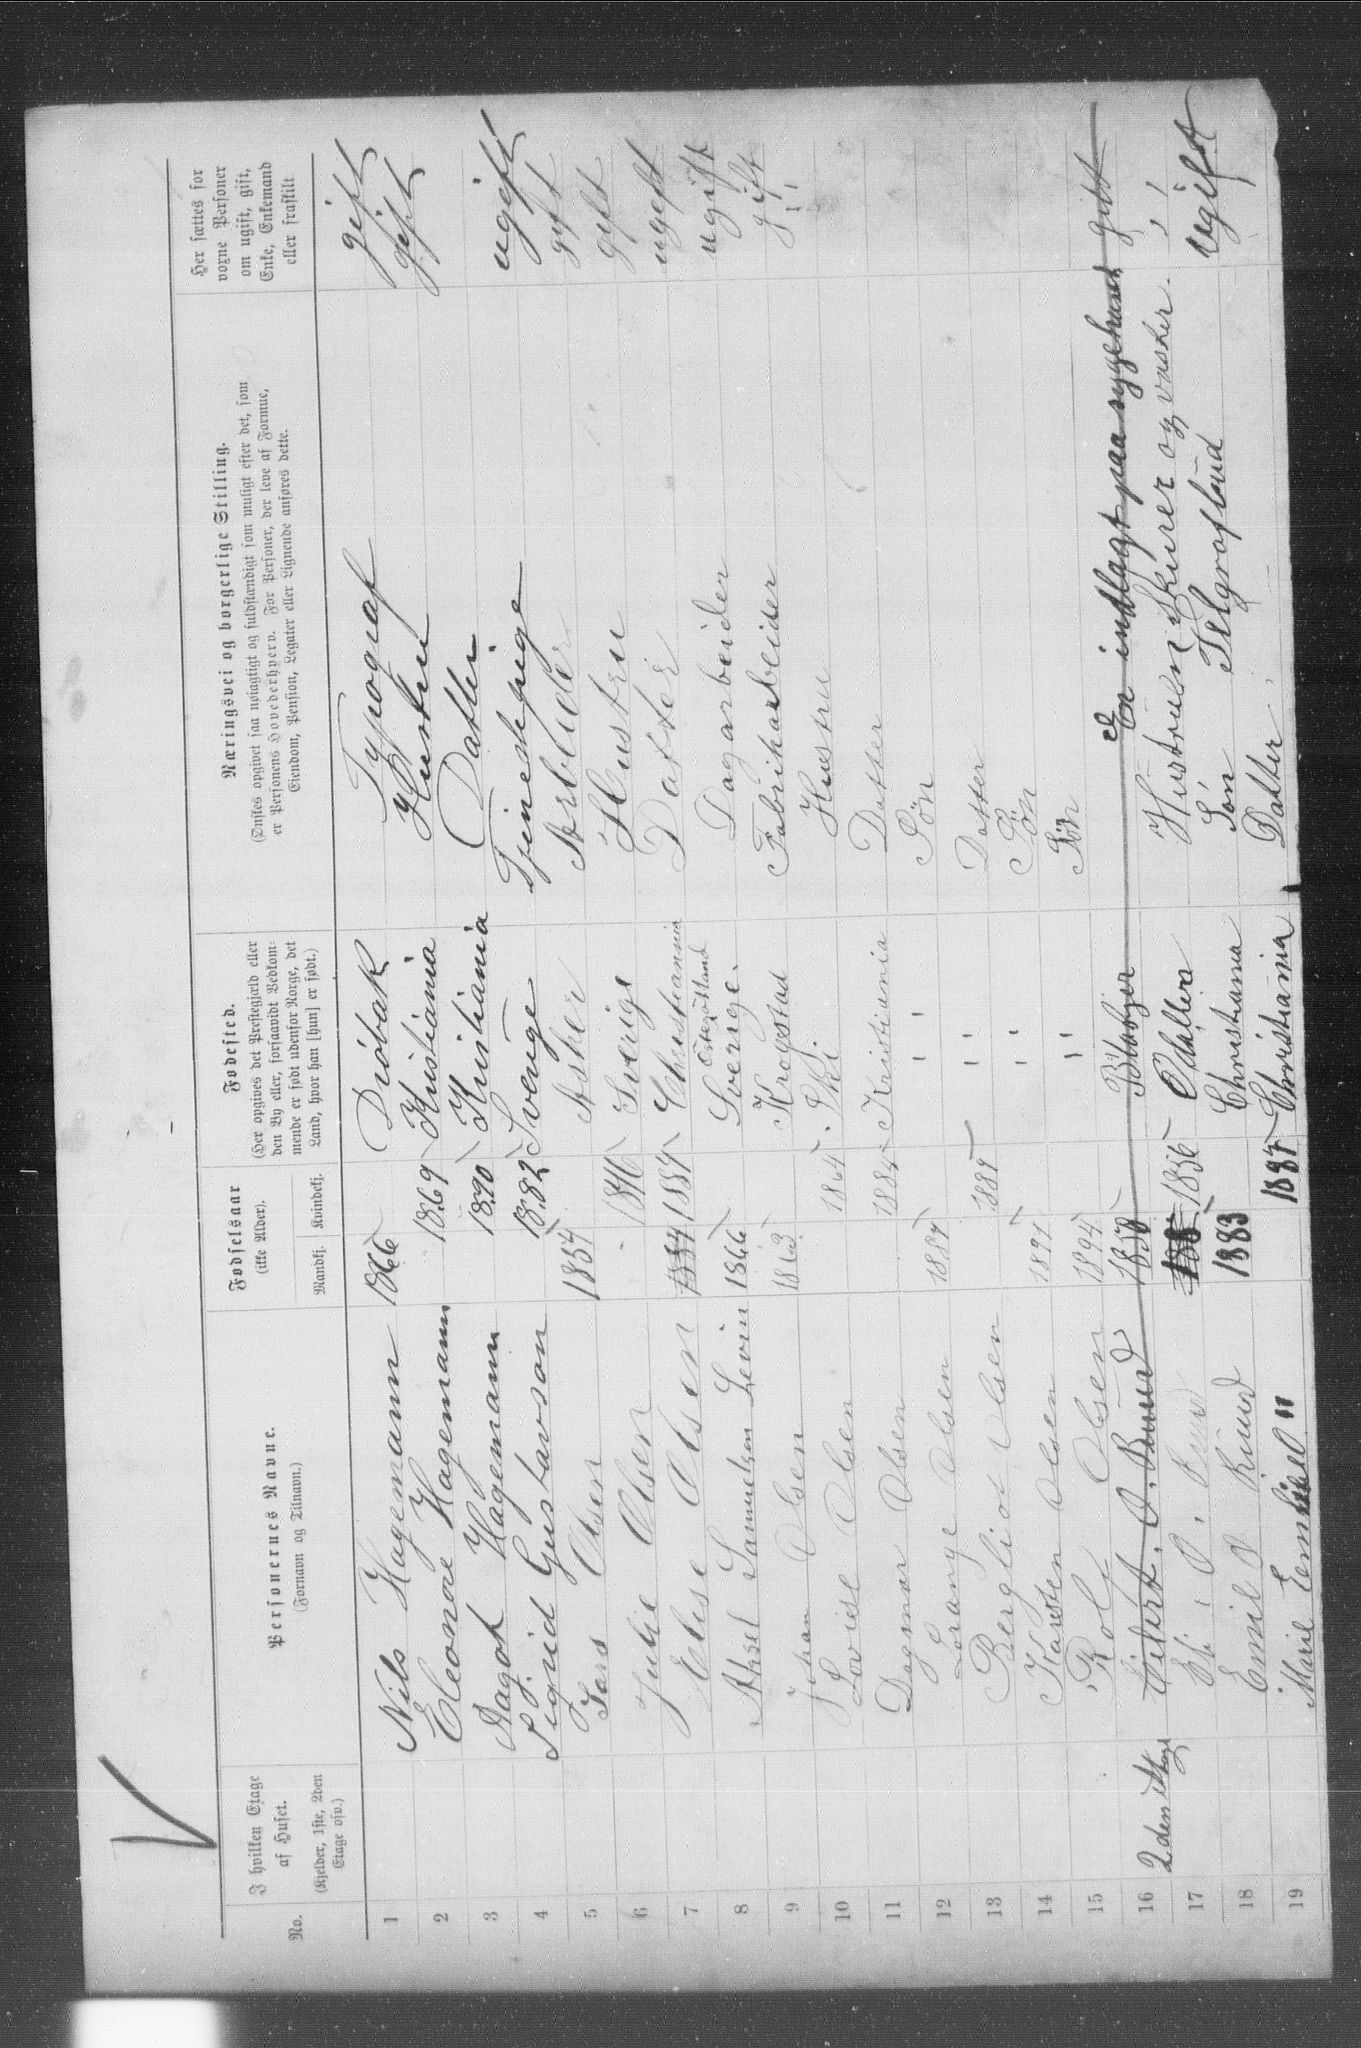 No.
I hvilken Etage
af Huset.
(Kjelder, 1ste, 2den
Etage osv.)
Personernes Navne.
(Fornavn og Tilnavn.)
Fødselsaar
(ikke Alder).
Mandkj. Kvindekj.
Fødested.
(Her opgives det Prestegjæld eller
den By eller, forsaavidt Vedkom-
mende er født udenfor Norge, det
Land, hvor han [hun] er født.)
Næringsvei og borgerlige Stilling.
(Ønskes opgivet saa nøiagtigt og fuldstændigt som muligt efter det, som
er Personens Hovederhverv. For Personer, der leve af Formue,
Eiendom, Pension, Legater eller Lignende anføres dette.
Her sættes for
voxne Personer
om ugift, gift,
Enke, Enkemand
eller fraskilt
1 Nils Hagemann 1866 Drøbak Typograf gift
2 Eleonore Hagemann 1869 Kristiania Hustru gift
3 Aagot Hagemann 1890 Kristiania Datter
4 Sigrid Gustavson 1882 Sverige Tjenestepige ugift
5 Lars Olsen 1857 Asker Arbeider gift
6 Julie Olsen 1846 Sverige Hustru gift
7 Elise Olsen 1884 1884 Christiannia Datter ugift
8 Aksel Samuelsen Levin 1866 Sverige. Østergøtland Dagarbeider ugift
9 Johan Olsen 1863 Krogstad Fabrikarbeider gift
10 Lovise Olsen 1864 Ski. Hustru "
11 Dagmar Olsen 1884 Kristiania Datter
12 Lorange Olsen 1887 " Søn
13 Bergliot Olsen 1889 " Datter
14 Karsten Olsen 1891 " Søn
15 Rolf Olsen 1894 " Søn
16 2den Etage Eilert. O. Ruud 1850 Er indlagt paa sygehuset gift
17 O. Ruud 1856 Hustruen skurer og vasker. "
18 Emil O Ruud 1883 Christiania Søn Telgrafbud ugift
19 Marie Emilie " 1887 Christiania Datter